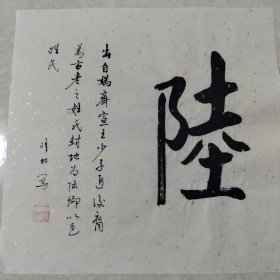 陸
出自媯齊宣王少子通後裔
為古老之姓氏封地為陸鄉以邑
姓氏
寫